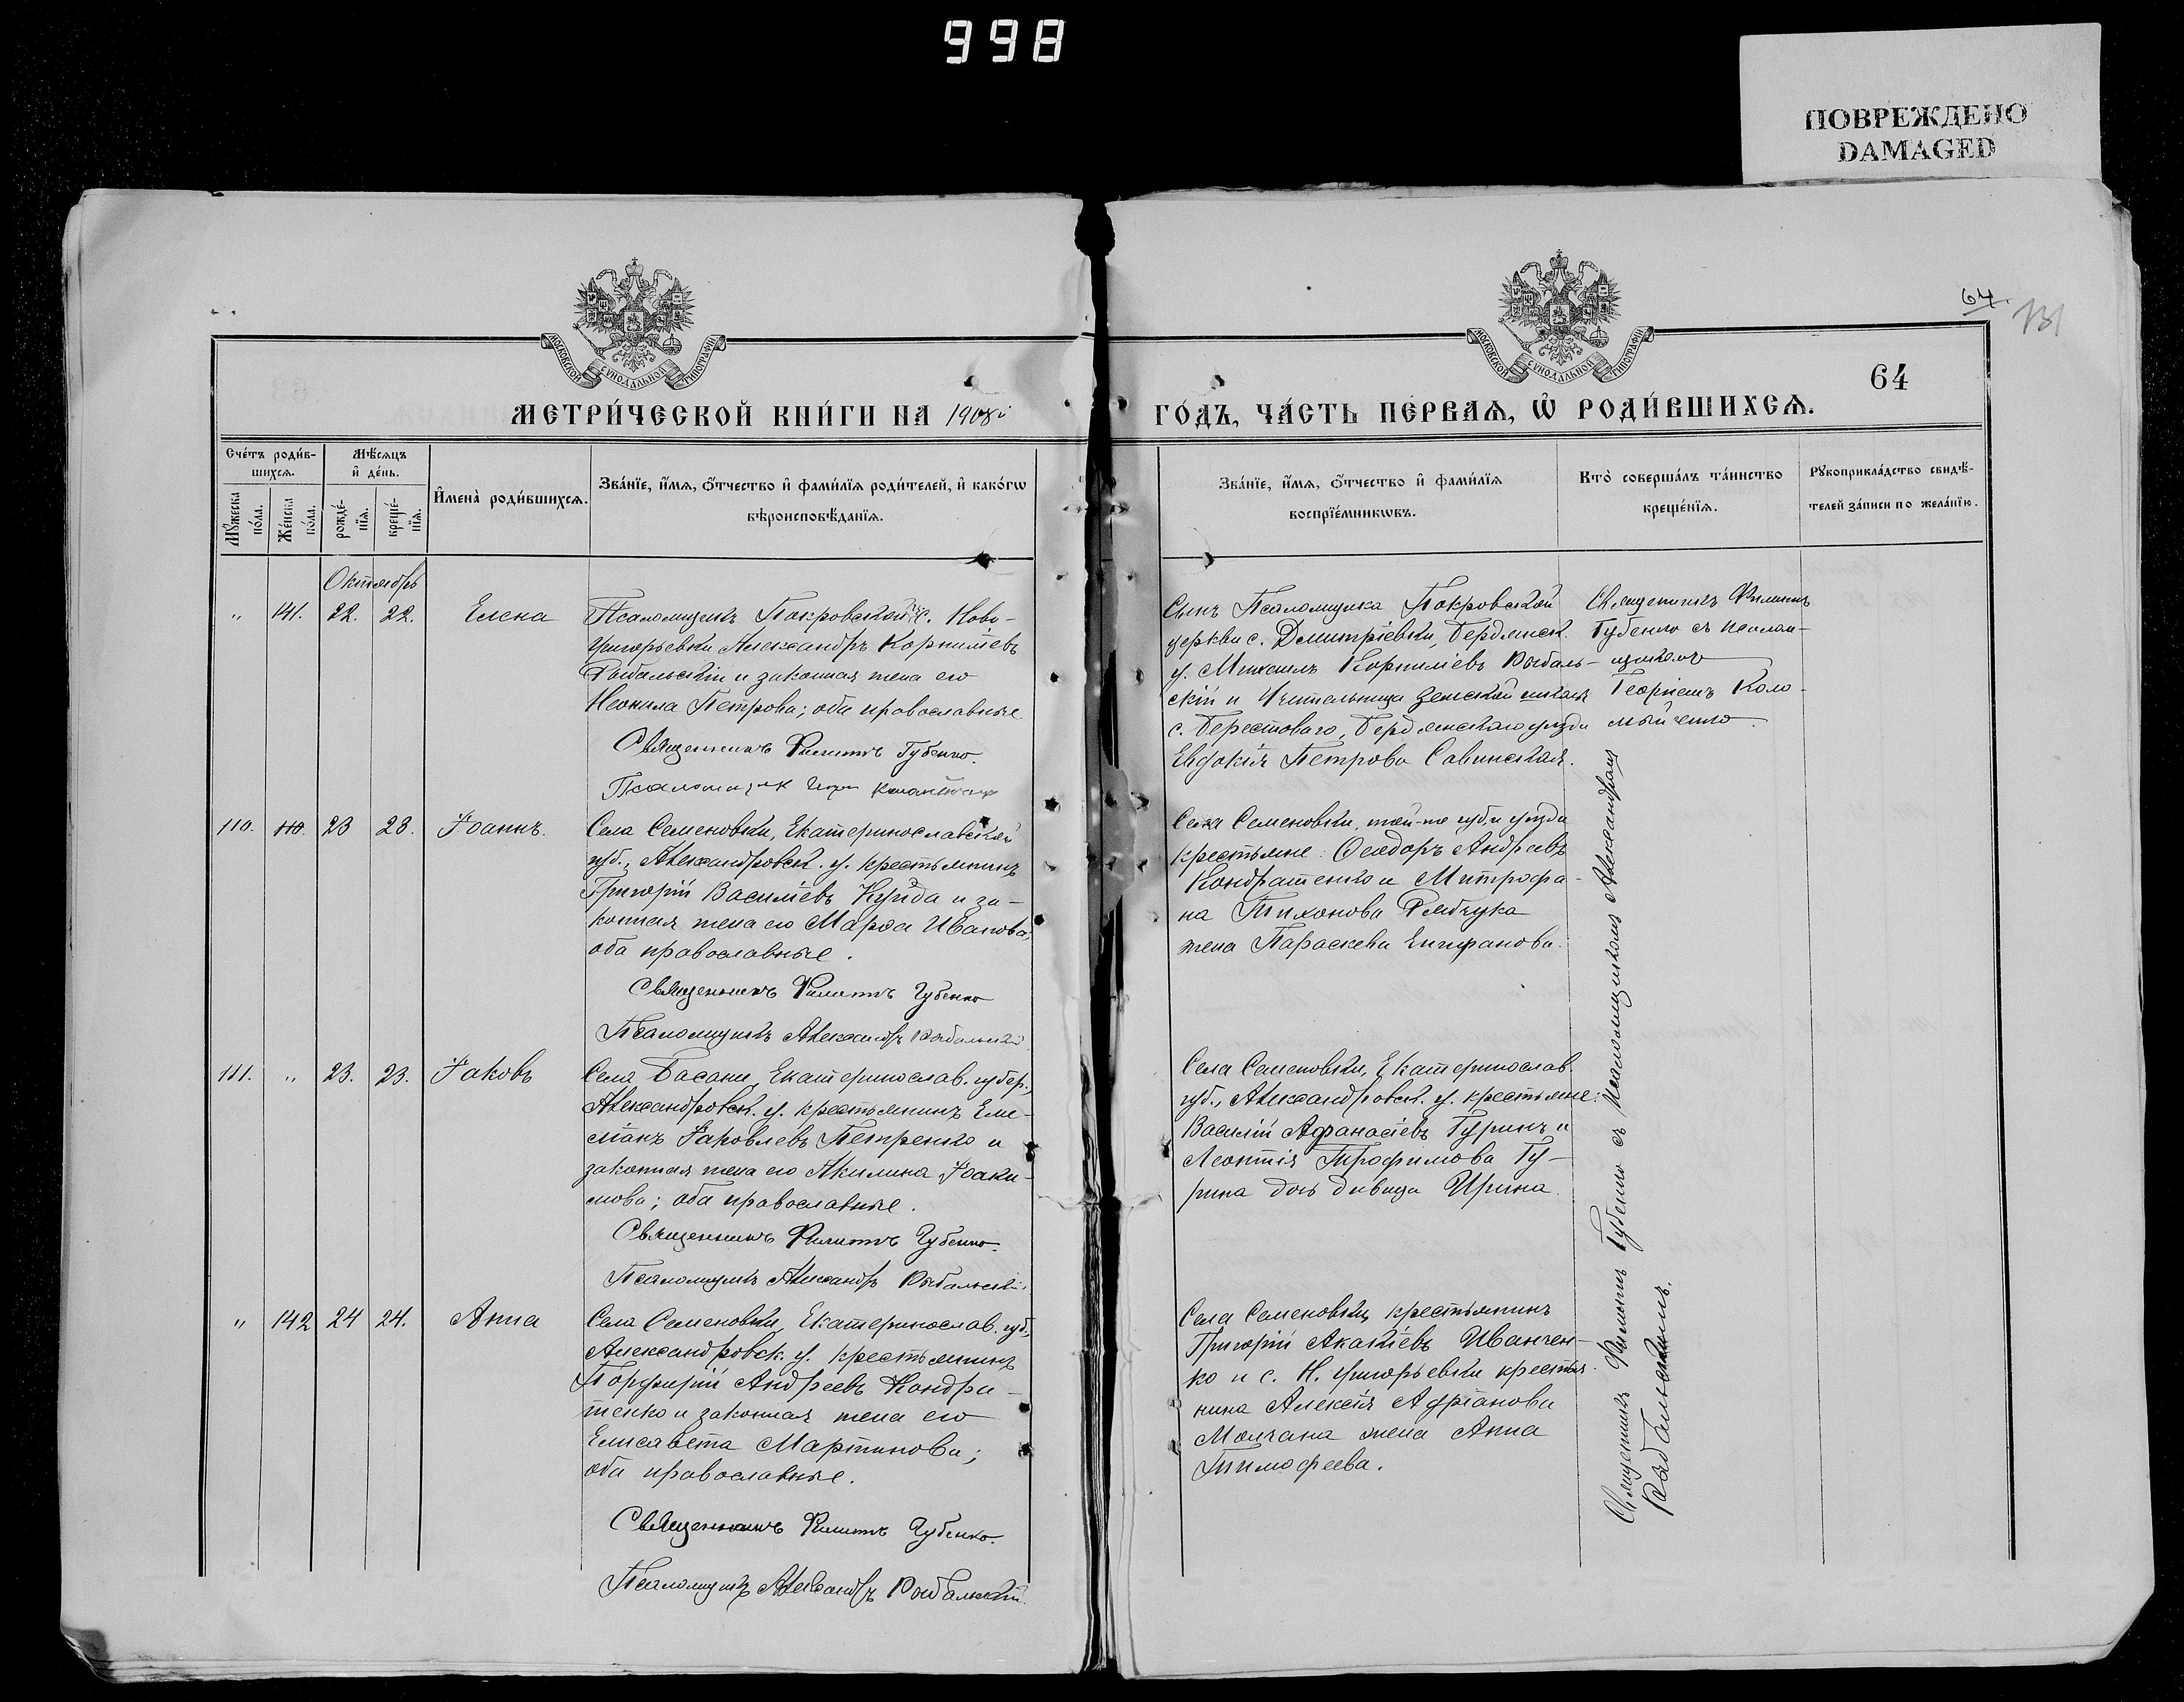 998
ПОВРЕЖДЕНО
DAMAGED
64.
131
64
МОСКОВСКОЙ СУНОДАЛЬНОЙ ТИПОГРАФІИ
МОСКОВСКОЙ СУНОДАЛЬНОЙ ТИПОГРАФІИ
МЕТРИ́ЧЕСКОЙ КНИ́ГИ НА 1908й ГО́ДЪ, ЧА́СТЬ ПЕ́РВАѦ, Ѡ РОДИ́ВШИХСѦ.
Сче́тъ роди́в-
шихсѧ.
Мꙋ́жеска
по́ла.
Же́нска
по́ла.
Мѣ́сѧцъ
и҆ де́нь.
рожде́-
нїѧ.
креще́-
нїѧ.
И҆мена̀ роди́вшихсѧ.
Зва́нїе, и҆́мѧ, ѻ҆́тчество и҆ фами́лїѧ роди́телей, и҆ како́гѡ
вѣроисповѣ́данїѧ.
Зва́нїе, и҆́мѧ, ѻ҆́тчество и҆ фами́лїѧ
воспрїе́мникѡвъ.
Кто̀ соверша́лъ та́инство
креще́нїѧ.
Рꙋкоприкла́дство свидѣ́-
телей за́писи по жела́нїю.
Октябрь
" 141. 22. 22. Елена
Псаломщикъ Покровской ц. с. Ново-
григорьевки Александръ Корниліевъ
Рыбальскій и законная жена его
Неонила Петрова; оба православные.
Священникъ Филиппъ Губенко.
Псаломщик
Сынъ Псаломщика Покровской
церкви с. Дмитріевки, Бердянск.
у. Михаилъ Корниліевъ Рыбаль-
скій и Учительница Земской школы
с. Берестоваго, Бердянскаго уѣзда
Евдокія Петрова Савинская.
Священникъ Филиппъ
Губенко съ псалом-
щикомъ
Георгіемъ Коло-
мыйченко.
110. 110. 23 23. Іоаннъ.
Села Семеновки, Екатеринославской
губ., Александровск. у. крестьянинъ
Григорій Василіевъ Куйда и за-
конная жена его Марѳа Иванова,
оба православные.
Священникъ Филиппъ Губенко
Псаломщикъ Александръ Рыбальскій
Села Семеновки, той-же губ. и уѣзда
крестьяне: Ѳеодоръ Андреевъ
Кондратенко и Митрофа-
на Тихонова Рябчука
жена Параскева Епифанова.
111. " 23. 23. Іаковъ
Села Басани, Екатеринослав. губер.,
Александровск. у. крестьянинъ Еме-
ліанъ Іаковлевъ Петренко и
законная жена его Акилина Іоаки-
мова; оба православные.
Священникъ Филиппъ Губенко.
Псаломщикъ Александръ Рыбальскій.
Села Семеновки, Екатеринослав.
губ., Александровск. у. крестьяне:
Василій Аѳанасіевъ Гуринъ и
Леонтія Трофимова Гу-
рина дочь дѣвица Ирина.
" 142 24 24. Анна
Села Семеновки, Екатеринослав. губ.,
Александровск. у. крестьянинъ
Порфирій Андреевъ Кондра-
тенко и законная жена его
Елисавета Мартинова;
оба православные.
Священникъ Филиппъ Губенко.
Псаломщикъ Александръ Рыбальскій.
Села Семеновки, крестьянинъ
Григорій Акакіевъ Иванчен-
ко и с. Н. Григорьевки крестья-
нина Алексія Адріанова
Молчана жена Анна
Тимоѳеева.
Священникъ Филиппъ Губенко съ псаломщикомъ Александромъ
Рыбальскимъ.